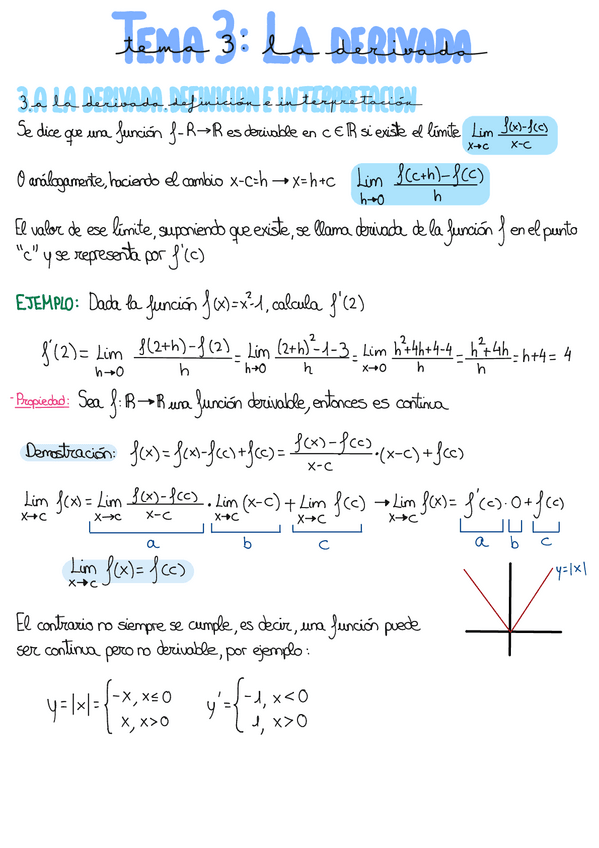 Tema 3: La derivada
3.a La derivada. definición e interpretación
Se dice que una función f-R→R es derivable en c ∈ R si existe el límite Lim x→c f(x)-f(c) / x-c
O análogamente, haciendo el cambio x-c=h → x=h+c Lim h→0 f(c+h)-f(c) / h
El valor de ese límite, suponiendo que existe, se llama derivada de la función f en el punto
"c" y se representa por f'(c)
EJEMPLO: Dada la función f(x)=x²-1, calcula f'(2)
f'(2)= Lim h→0 f(2+h)-f(2) / h = Lim h→0 (2+h)²-1-3 / h = Lim x→0 h²+4h+4-4 / h = h²+4h / h = h+4= 4
-Propiedad: Sea f: R→R una función derivable, entonces es continua
Demostración: f(x)=f(x)-f(c)+f(c)= f(x)-f(c) / x-c ·(x-c)+f(c)
Lim x→c f(x)= Lim x→c f(x)-f(c) / x-c · Lim x→c (x-c) + Lim x→c f(c) → Lim x→c f(x)= f'(c)·0+f(c)
a b c a b c
Lim x→c f(x)= f(c)
y=|x|
El contrario no siempre se cumple, es decir, una función puede
ser continua pero no derivable, por ejemplo:
y=|x|= { -x, x≤0 y'= { -1, x<0
x, x>0 1, x>0